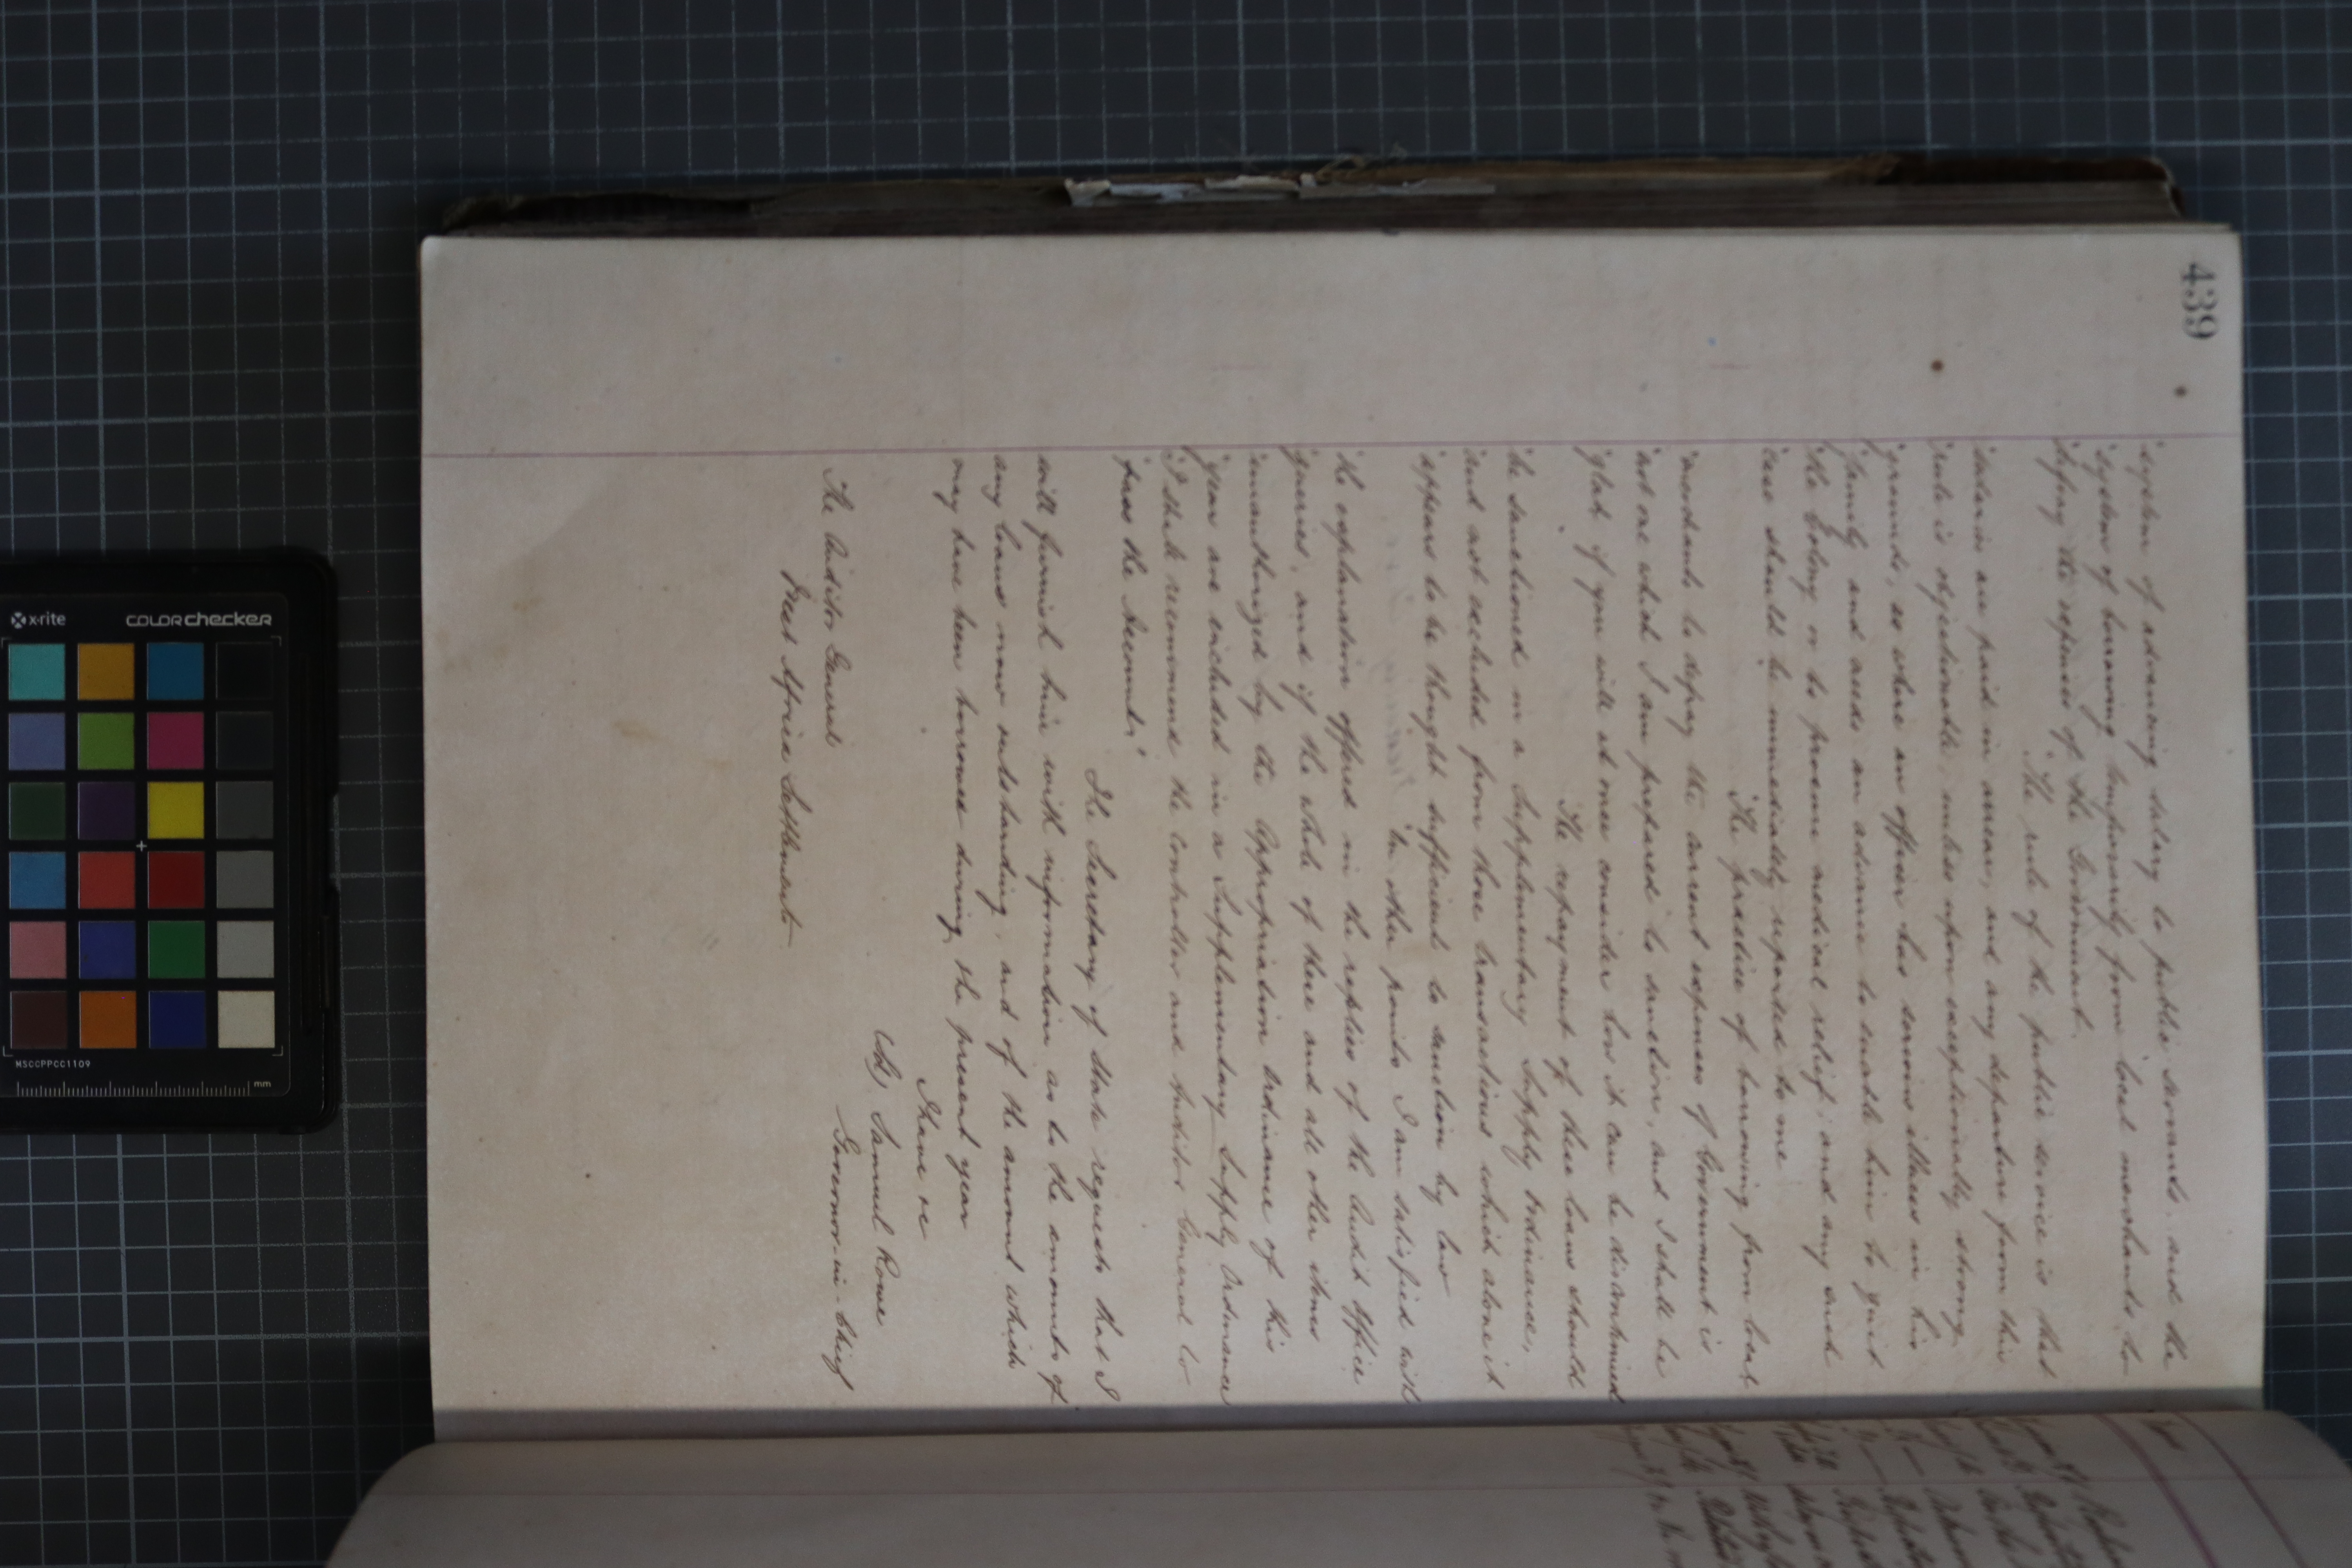 439
"system of advancing salary to public servants, and the
"system of borrowing temporarily from local merchants to
"defray the expenses of the Government.
"The rule of the public service is that
"salaries are paid in arrear, and any departure from this
"rule is objectionable, unless upon exceptionally strong
"grounds, as where an officer has serious illness in his
"family and needs an advance to enable him to quit
"the Colony or to procure medical relief, and any such
"case should be immediately reported to me
"The practice of borrowing from local
"merchants to defray the current expenses of Government is
"not one which I am prepared to sanction, and I shall be
"glad if you will at once consider how it can be discontinued
"The repayment of these loans should
"be sanctioned in a Supplementary Supply Ordinance,
"and not excluded from those transactions which alone it
"appears to be thought sufficient to sanction by law
"On other points I am satisfied with
"the explanation offered in the replies of the Audit Office
"queries, and if the whole of these and all other items
"unauthorized by the Appropriation Ordinance of this
"year are included in a Supplementary Supply Ordinance
"I shall recommend the Controller and Auditor General to
"pass the Accounts."
The Secretary of State requests that I
will furnish him with information as to the amounts of
any loans now outstanding, and of the amount which
may have been borrowed during the present year
I have &c
Samuel Rowe
Governor-in-Chief
The Auditor General
West Africa Settlements
x-rite
colorchecker
MSCCPPCC1109
mm